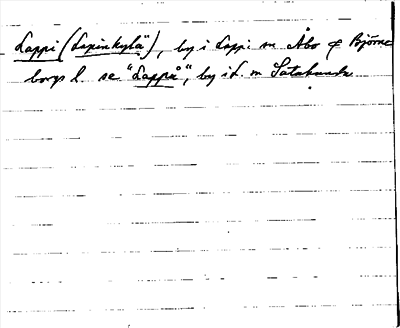 Lappi (Lapinkylä), by i Lappi sn Åbo o Björne
borgs l. se "Lappi", by i L. sn Satakunda